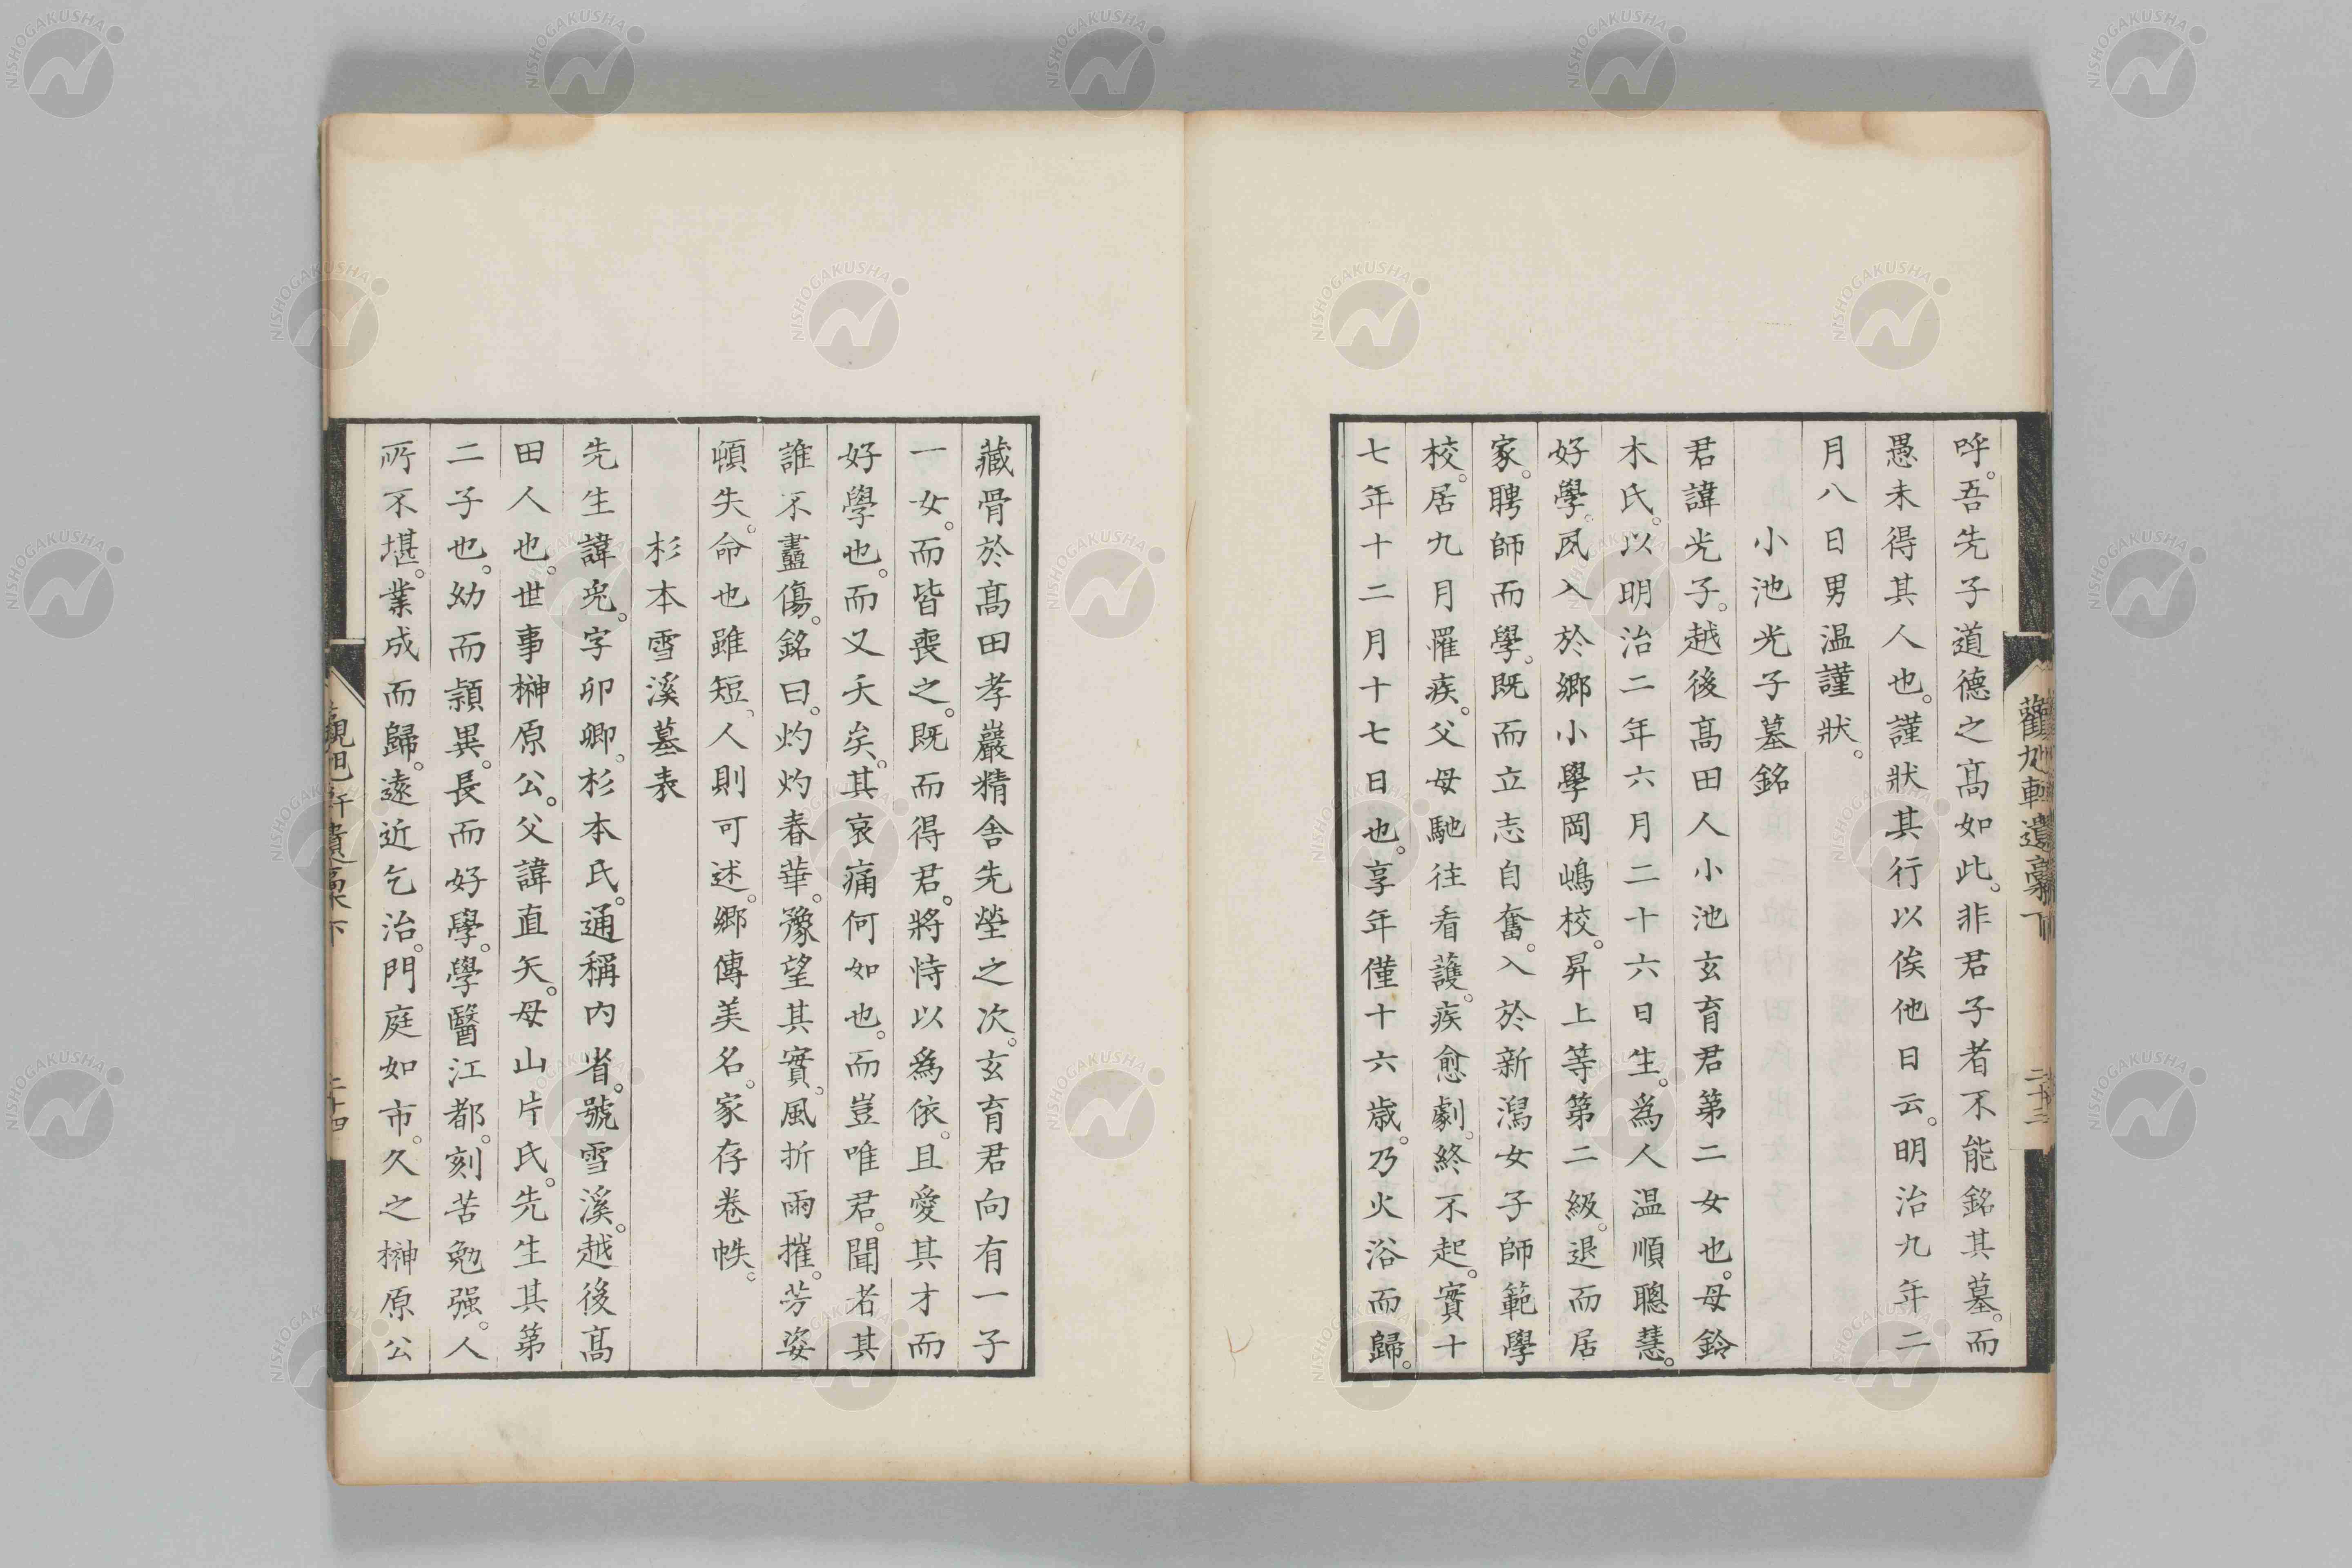 呼。吾先子道德之髙如此。非君子者不能銘其墓。而
愚未得其人也。謹狀其行以俟他日云。明治九年二
月八日男温謹狀。
小池光子墓銘
君諱光子。越後髙田人小池玄育君第二女也。母鈴
木氏。以明治二年六月二十六日生。為人温順聰慧。
好學。夙入於鄉小學岡嶋校。昇上等第二級。退而居
家。聘師而學。既而立志自奮。入於新潟女子師範學
校。居九月罹疾。父母馳往看護。疾愈劇。終不起。實十
七年十二月十七日也。享年僅十六歲。乃火浴而歸。
觀旭軒遺稾下
二十三
藏骨於髙田孝巖精舍先塋之次。玄育君向有一子
一女。而皆喪之。既而得君。將恃以為依。且愛其才而
好學也。而又夭矣。其哀痛何如也。而豈唯君。聞者其
誰不盡傷。銘曰。灼灼春華。豫望其實。風折雨摧。芳姿
頓失。命也雖短、人則可述。鄉傳美名。家存卷帙。
杉本雪溪墓表
先生諱㒵。字卯卿。杉本氏。通稱内省。號雪溪。越後髙
田人也。世事榊原公。父諱直矢。母山片氏。先生其第
二子也。幼而頴異。長而好學。學醫江都。刻苦勉强。人
所不堪。業成而歸。遠近乞治。門庭如市。久之榊原公
觀旭軒遺稾下
二十四
NISHOGAKUSHA